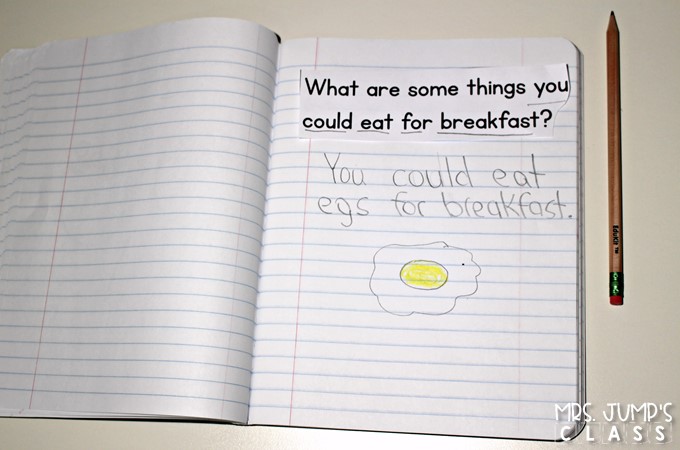 What are some things you
could eat for breakfast?
You could eat
egs for breakfast.
MRS. JUMP'S
CLASS